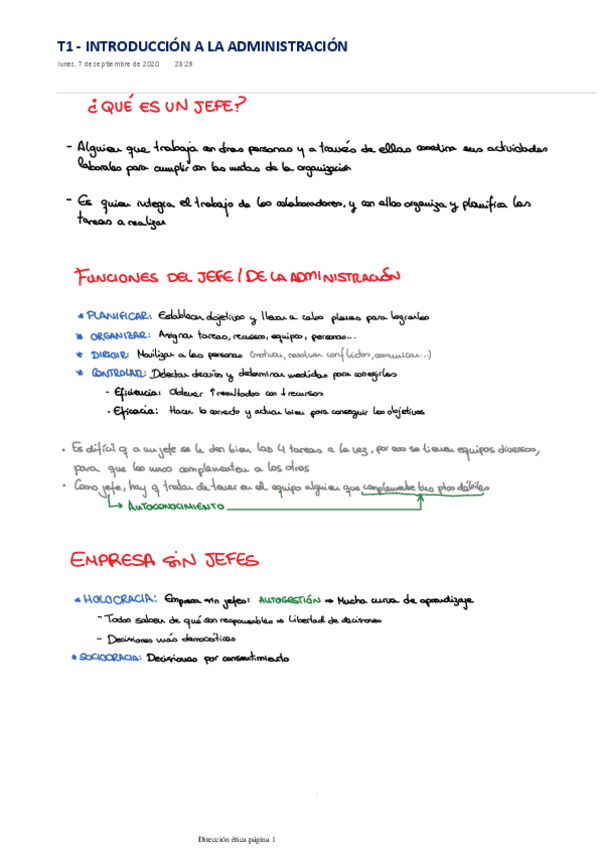 T1 - INTRODUCCIÓN A LA ADMINISTRACIÓN
lunes, 7 de septiembre de 2020 23:29
¿QUÉ ES UN JEFE?
- Alguien que trabaja con otras personas y a través de ellas coordina sus actividades
laborales para cumplir con las metas de la organización
- Es quien integra el trabajo de los colaboradores, y con ellos organiza y planifica las
tareas a realizar
FUNCIONES DEL JEFE / DE LA ADMINISTRACIÓN
* PLANIFICAR: Establecer objetivos y llevar a cabo planes para lograrlos
* ORGANIZAR: Asignar tareas, recursos, equipos, personas...
* DIRIGIR: Movilizar a las personas (motivar, resolver conflictos, comunicar...)
* CONTROLAR: Detectar desvíos y determinar medidas para corregirlos
- Eficiencia: Obtener ↑resultados con ↓recursos
- Eficacia: Hacer lo correcto y actuar bien para conseguir los objetivos
• Es difícil q a un jefe se le den bien las 4 tareas a la vez, por eso se tienen equipos diversos,
para que los unos complementen a los otros
• Como jefe, hay q tratar de tener en el equipo alguien que complemente tus ptos débiles
↳ AUTOCONOCIMIENTO
EMPRESA SIN JEFES
* HOLOCRACIA: Empresa sin jefes: AUTOGESTIÓN → Mucha curva de aprendizaje
- Todos saben de qué son responsables → Libertad de decisiones
- Decisiones más democráticas
* SOCIOCRACIA: Decisiones por consentimiento
Dirección ética página 1